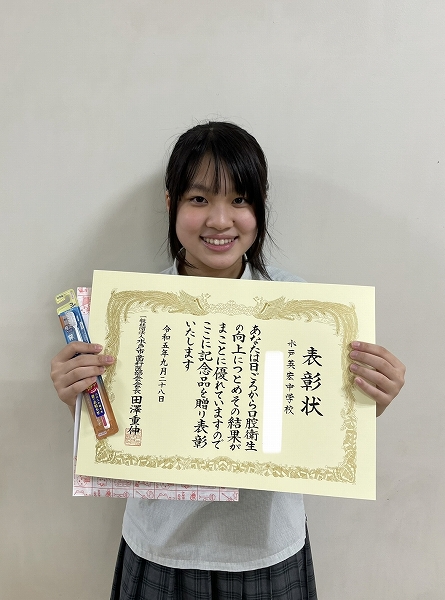 表彰状
水戸英宏中学校
あなたは日ごろから口腔衛生
の向上につとめその結果が
まことに優れていますので
ここに記念品を贈り表彰
いたします
令和五年九月二十八日
一般社団法人水戸市歯科医師会会長 田澤重伸